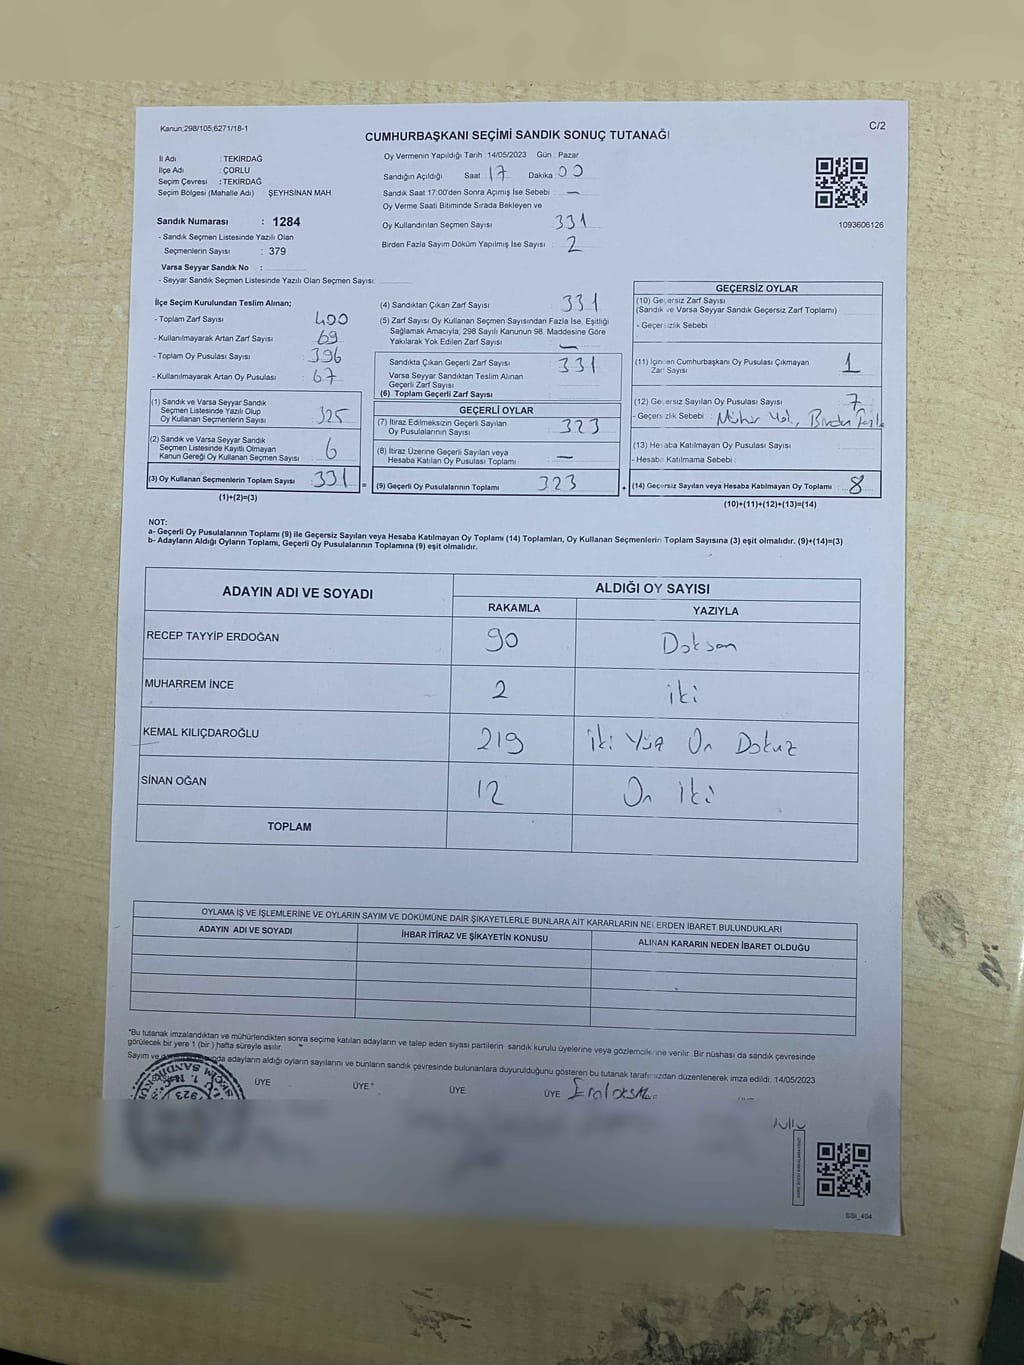 Kanun;298/105,6271/18-1
C/2
CUMHURBAŞKANI SEÇİMİ SANDIK SONUÇ TUTANAĞI
İl Adı : TEKİRDAĞ
İlçe Adı : ÇORLU
Seçim Çevresi : TEKİRDAĞ
Seçim Bölgesi (Mahalle Adı) ŞEYHSİNAN MAH.
Oy Vermenin Yapıldığı Tarih :14/05/2023 Gün : Pazar
Sandığın Açıldığı Saat 17 Dakika 00
Sandık Saat 17:00'den Sonra Açımış İse Sebebi : —
Oy Verme Saati Bitiminde Sırada Bekleyen ve
Oy Kullandırılan Seçmen Sayısı 331
Birden Fazla Sayım Döküm Yapılmış İse Sayısı : 2
1093606126
Sandık Numarası : 1284
- Sandık Seçmen Listesinde Yazılı Olan
Seçmenlerin Sayısı : 379
Varsa Seyyar Sandık No :
- Seyyar Sandık Seçmen Listesinde Yazılı Olan Seçmen Sayısı:
İlçe Seçim Kurulundan Teslim Alınan;
- Toplam Zarf Sayısı 400
- Kullanılmayarak Artan Zarf Sayısı 69
- Toplam Oy Pusulası Sayısı 396
- Kullanılmayarak Artan Oy Pusulası 67
(1) Sandık ve Varsa Seyyar Sandık
Seçmen Listesinde Yazılı Olup
Oy Kullanan Seçmenlerin Sayısı 325
(2) Sandık ve Varsa Seyyar Sandık
Seçmen Listesinde Kayıtlı Olmayan
Kanun Gereği Oy Kullanan Seçmen Sayısı 6
(3) Oy Kullanan Seçmenlerin Toplam Sayısı 331 =
(1)+(2)=(3)
(4) Sandıktan Çıkan Zarf Sayısı 331
(5) Zarf Sayısı Oy Kullanan Seçmen Sayısından Fazla İse, Eşitliği
Sağlamak Amacıyla; 298 Sayılı Kanunun 98. Maddesine Göre
Yakılarak Yok Edilen Zarf Sayısı —
Sandıkta Çıkan Geçerli Zarf Sayısı 331
Varsa Seyyar Sandıktan Teslim Alınan
Geçerli Zarf Sayısı
(6) Toplam Geçerli Zarf Sayısı
GEÇERLİ OYLAR
(7) İtiraz Edilmeksizin Geçerli Sayılan
Oy Pusulalarının Sayısı 323
(8) İtiraz Üzerine Geçerli Sayılan veya
Hesaba Katılan Oy Pusulası Toplamı —
(9) Geçerli Oy Pusulalarının Toplamı 323 +
GEÇERSİZ OYLAR
(10) Geçersiz Zarf Sayısı
(Sandık ve Varsa Seyyar Sandık Geçersiz Zarf Toplamı)
- Geçersizlik Sebebi
(11) İçinden Cumhurbaşkanı Oy Pusulası Çıkmayan
Zarf Sayısı 1
(12) Geçersiz Sayılan Oy Pusulası Sayısı 7
- Geçersizlik Sebebi : Mühür Birden
(13) Hesaba Katılmayan Oy Pusulası Sayısı
- Hesaba Katılmama Sebebi :
(14) Geçersiz Sayılan veya Hesaba Katılmayan Oy Toplamı 8
(10)+(11)+(12)+(13)=(14)
NOT:
a- Geçerli Oy Pusulalarının Toplamı (9) ile Geçersiz Sayılan veya Hesaba Katılmayan Oy Toplamı (14) Toplamları, Oy Kullanan Seçmenlerin Toplam Sayısına (3) eşit olmalıdır. (9)+(14)=(3)
b- Adayların Aldığı Oyların Toplamı, Geçerli Oy Pusulalarının Toplamına (9) eşit olmalıdır.
ADAYIN ADI VE SOYADI ALDIĞI OY SAYISI
RAKAMLA YAZIYLA
RECEP TAYYİP ERDOĞAN 90 Doksan
MUHARREM İNCE 2 iki
KEMAL KILIÇDAROĞLU 219 İki Yüz On Dokuz
SİNAN OĞAN 12 On iki
TOPLAM
OYLAMA İŞ VE İŞLEMLERİNE VE OYLARIN SAYIM VE DÖKÜMÜNE DAİR ŞİKAYETLERLE BUNLARA AİT KARARLARIN NELERDEN İBARET BULUNDUKLARI
ADAYIN ADI VE SOYADI İHBAR İTİRAZ VE ŞİKAYETİN KONUSU ALINAN KARARIN NEDEN İBARET OLDUĞU
*Bu tutanak imzalandıktan ve mühürlendikten sonra seçime katılan adayların ve talep eden siyasi partilerin sandık kurulu üyelerine veya gözlemcilerine verilir .Bir nüshası da sandık çevresinde
görülecek bir yere 1 (bir ) hafta süreyle asılır.
Sayım ve adayların aldığı oyların sayılarını ve bunların sandık çevresinde bulunanlara duyurulduğunu gösteren bu tutanak tarafımızdan düzenlenerek imza edildi. 14/05/2023
ÜYE ÜYE* ÜYE ÜYE
SSİ_404